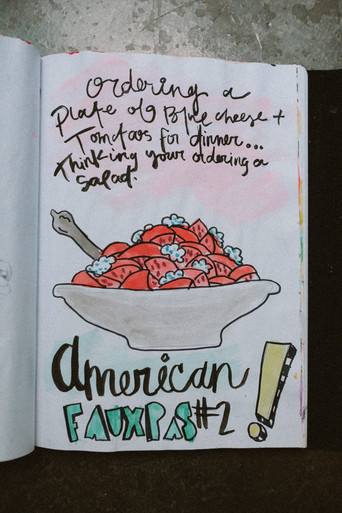 ordering a
Plate of Blue cheese +
Tomatoes for dinner...
Thinking your ordering a
salad.
American
FAUXPAS #2 !